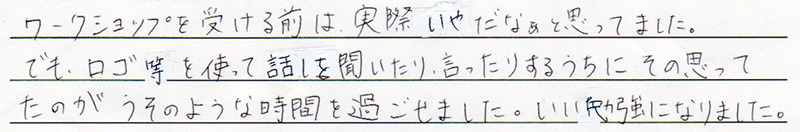 ワークショップを受ける前は、実際いやだなぁと思ってました。
でも、ロゴ等を使って話しを聞いたり、言ったりするうちにその思って
たのがうそのような時間を過ごせました。いい勉強になりました。